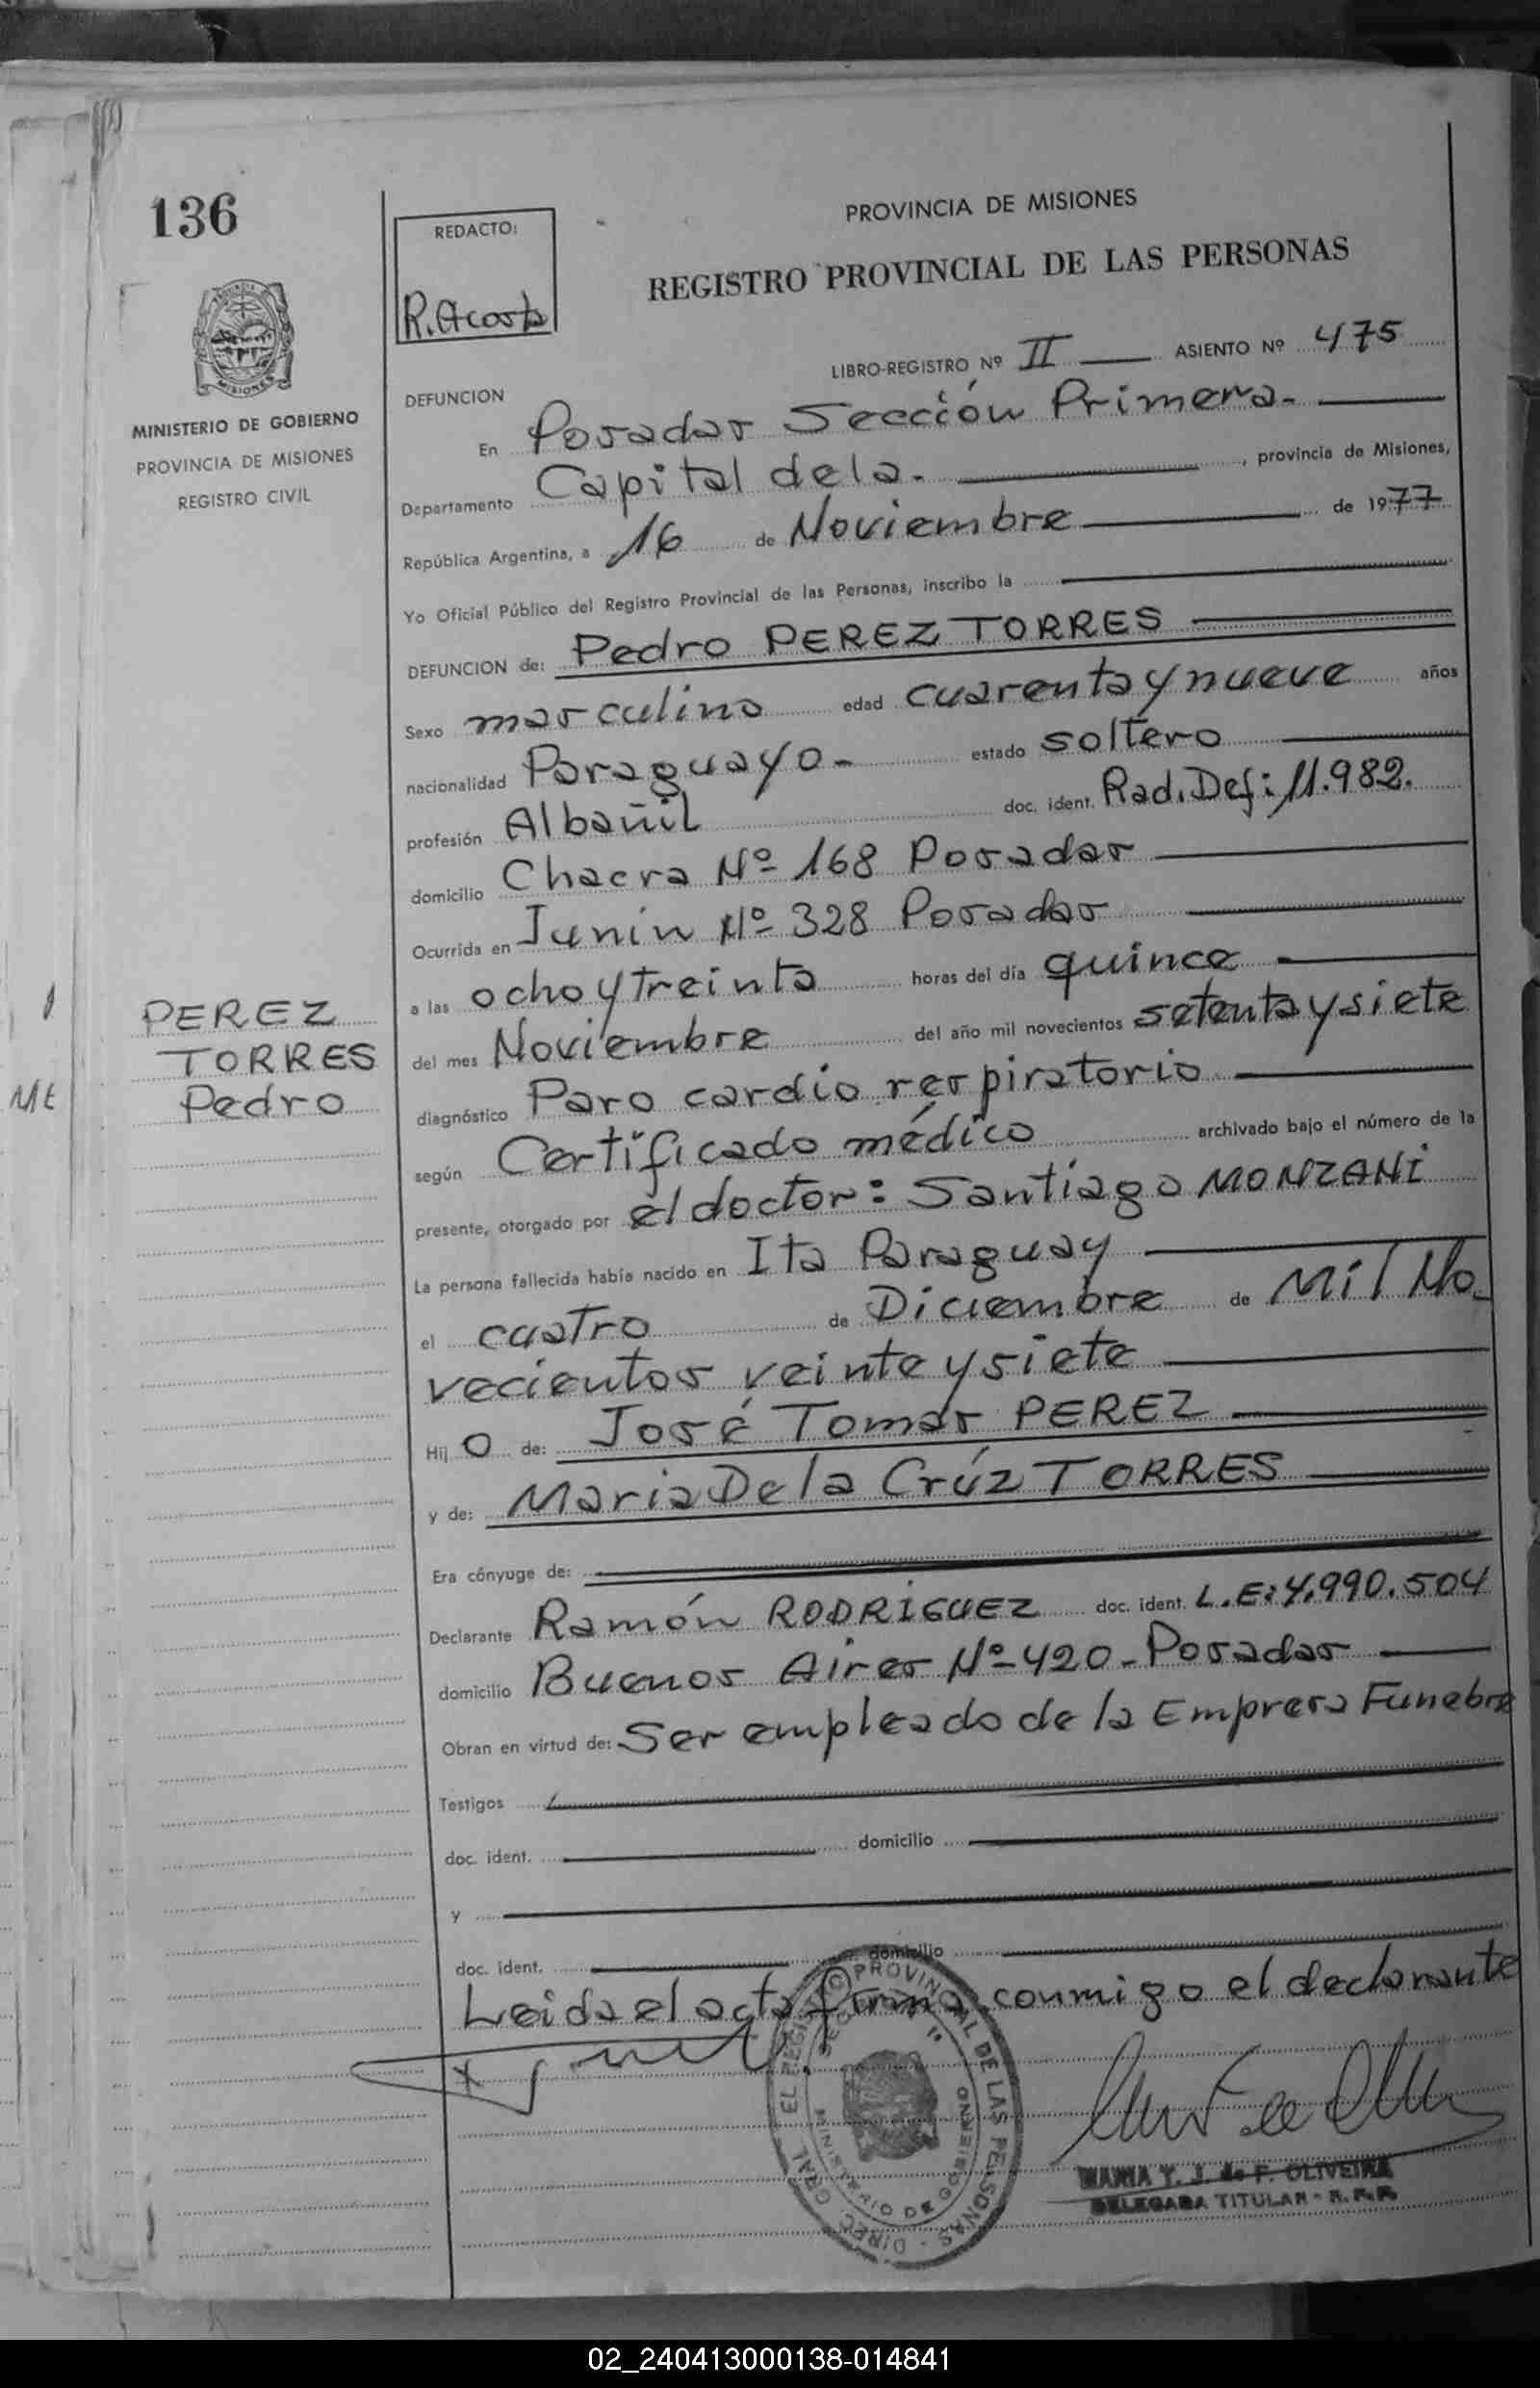 136
REDACTO:
R. Acosta
PROVINCIA DE MISIONES
REGISTRO PROVINCIAL DE LAS PERSONAS
LIBRO-REGISTRO Nº II ASIENTO Nº 475
MINISTERIO DE GOBIERNO
PROVINCIA DE MISIONES
REGISTRO CIVIL
DEFUNCION
En Posadas Sección Primera.-
Departamento Capital dela.-, provincia de Misiones,
República Argentina, a 16 de Noviembre de 1977
Yo Oficial Público del Registro Provincial de las Personas, inscribo la
DEFUNCION de: Pedro PEREZ TORRES
Sexo masculino edad cuarenta y nueve años
nacionalidad Paraguayo.- estado soltero
profesión Albañil doc. ident. Rad. Def: 11.982.
domicilio Chacra Nº 168 Posadas
Ocurrida en Junin Nº 328 Posadas
a las ocho y treinta horas del día quince
del mes Noviembre del año mil novecientos setenta y siete
PEREZ
TORRES
Pedro
diagnóstico Paro cardio respiratorio
según Certificado médico archivado bajo el número de la
presente, otorgado por el doctor: Santiago MONZANI
La persona fallecida había nacido en Ita Paraguay
el cuatro de Diciembre de Mil No-
vecientos veinte y siete
Hij o de: José Tomas PEREZ
y de: Maria De la Crúz TORRES
Era cónyuge de:
Declarante Ramón RODRÍGUEZ doc. ident. L.E: 4.990.504
domicilio Buenos Aires Nº 420- Posadas
Obran en virtud de: Ser empleado de la Empresa Funebre
Testigos
doc. ident. domicilio
y
doc. ident. domicilio
Leida el acta firma conmigo el declarante
DIREC. GRAL. EL REGISTRO PROVINCIAL DE LAS PERSONAS
MINISTERIO DE GOBIERNO
MARIA Y. J. de F. OLIVEIRA
DELEGADA TITULAR - R. P. P.
02_240413000138-014841